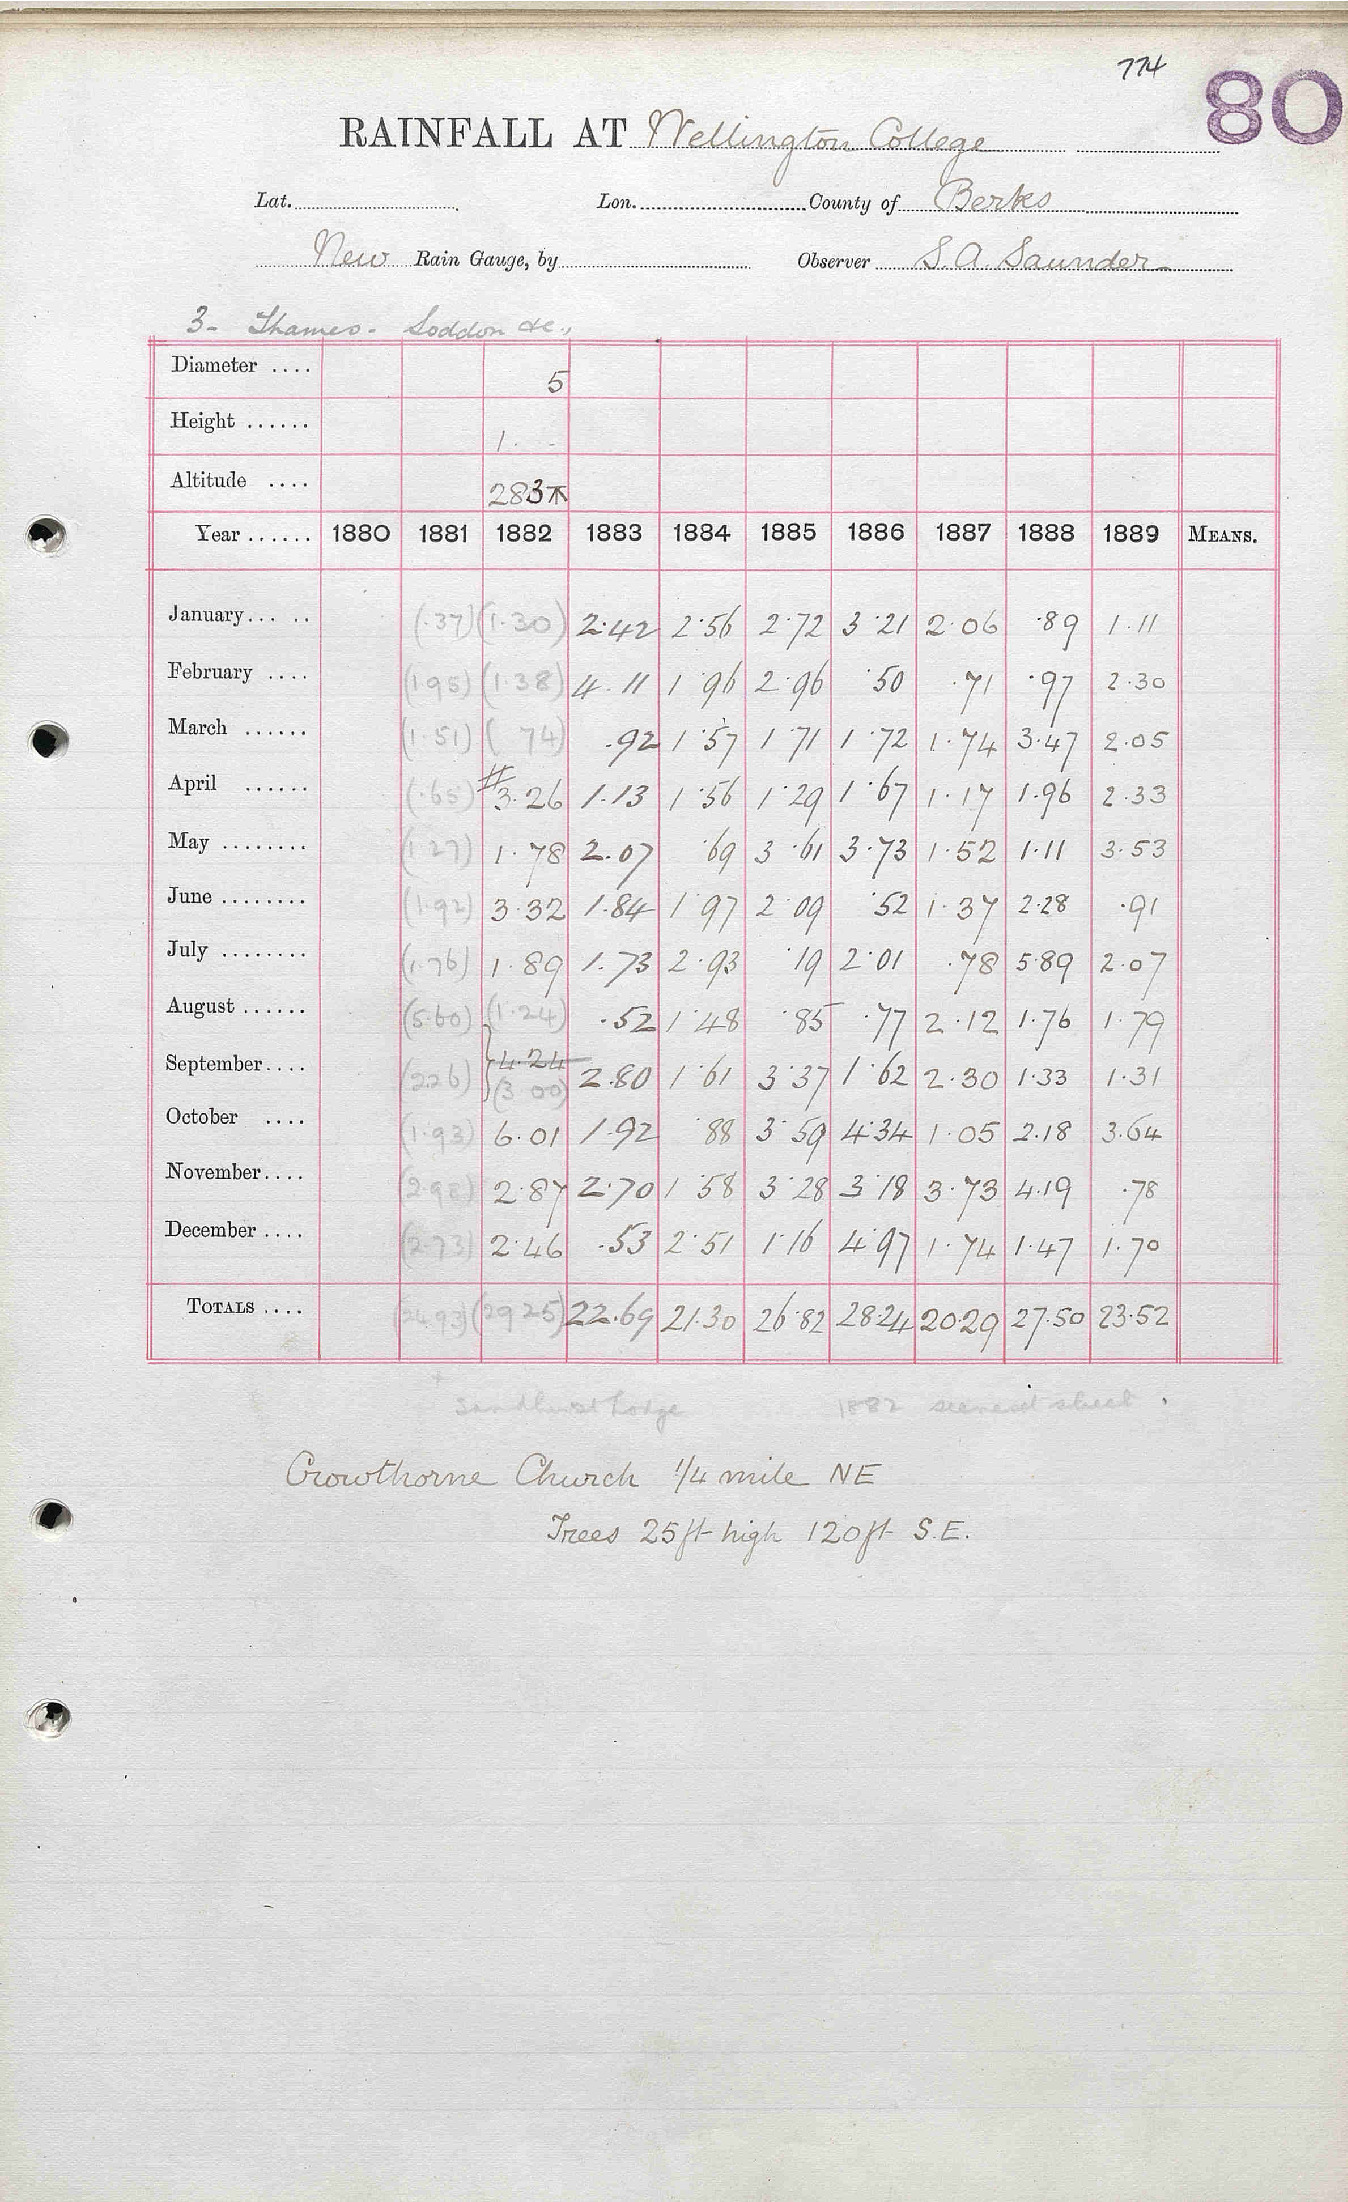 774
80
RAINFALL AT Wellington College
Lat. Lon. County of Berks
New Rain Gauge, by Observer S.A. Saunder
3- Thames - Loddon &c.,
Diameter .... 5
Height ...... 1. -
Altitude .... 283
Year ...... 1880 1881 1882 1883 1884 1885 1886 1887 1888 1889 MEANS.
January... .. (.37) (1.30) 2.42 2.56 2.72 3.21 2.06 .89 1.11
February .... (1.95) (1.38) 4.11 1.96 2.96 .50 .71 .97 2.30
March ...... (1.51) ( 74) .92 1.57 1.71 1.72 1.74 3.47 2.05
April ...... (.65) #3.26 1.13 1.56 1.29 1.67 1.17 1.96 2.33
May ........ (1.27) 1.78 2.07 .69 3.61 3.73 1.52 1.11 3.53
June ........ (1.92) 3.32 1.84 1.97 2.09 .52 1.37 2.28 .91
July ........ (1.76) 1.89 1.73 2.93 .19 2.01 .78 5.89 2.07
August ...... (5.60) (1.24) .52 1.48 .85 .77 2.12 1.76 1.79
September.... (2.26) 4.24 (3.00) 2.80 1.61 3.37 1.62 2.30 1.33 1.31
October .... (1.93) 6.01 1.92 .88 3.59 4.34 1.05 2.18 3.64
November.... (2.98) 2.87 2.70 1.58 3.28 3.18 3.73 4.19 .78
December .... (2.73) 2.46 .53 2.51 1.16 4.97 1.74 1.47 1.70
TOTALS .... (24.93) (29.25) 22.69 21.30 26.82 28.24 20.29 27.50 23.52
Sandhurst Lodge 1882 second sheet.
Crowthorne Church 1/4 mile NE
Trees 25ft high 120ft S.E.